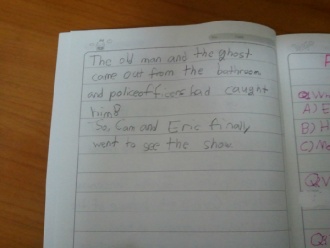 The old man and the ghost
came out from the bathroom
and policeofficers had caught
him!
So, Sam and Eric finally
went to see the show
A)
B) H
C)